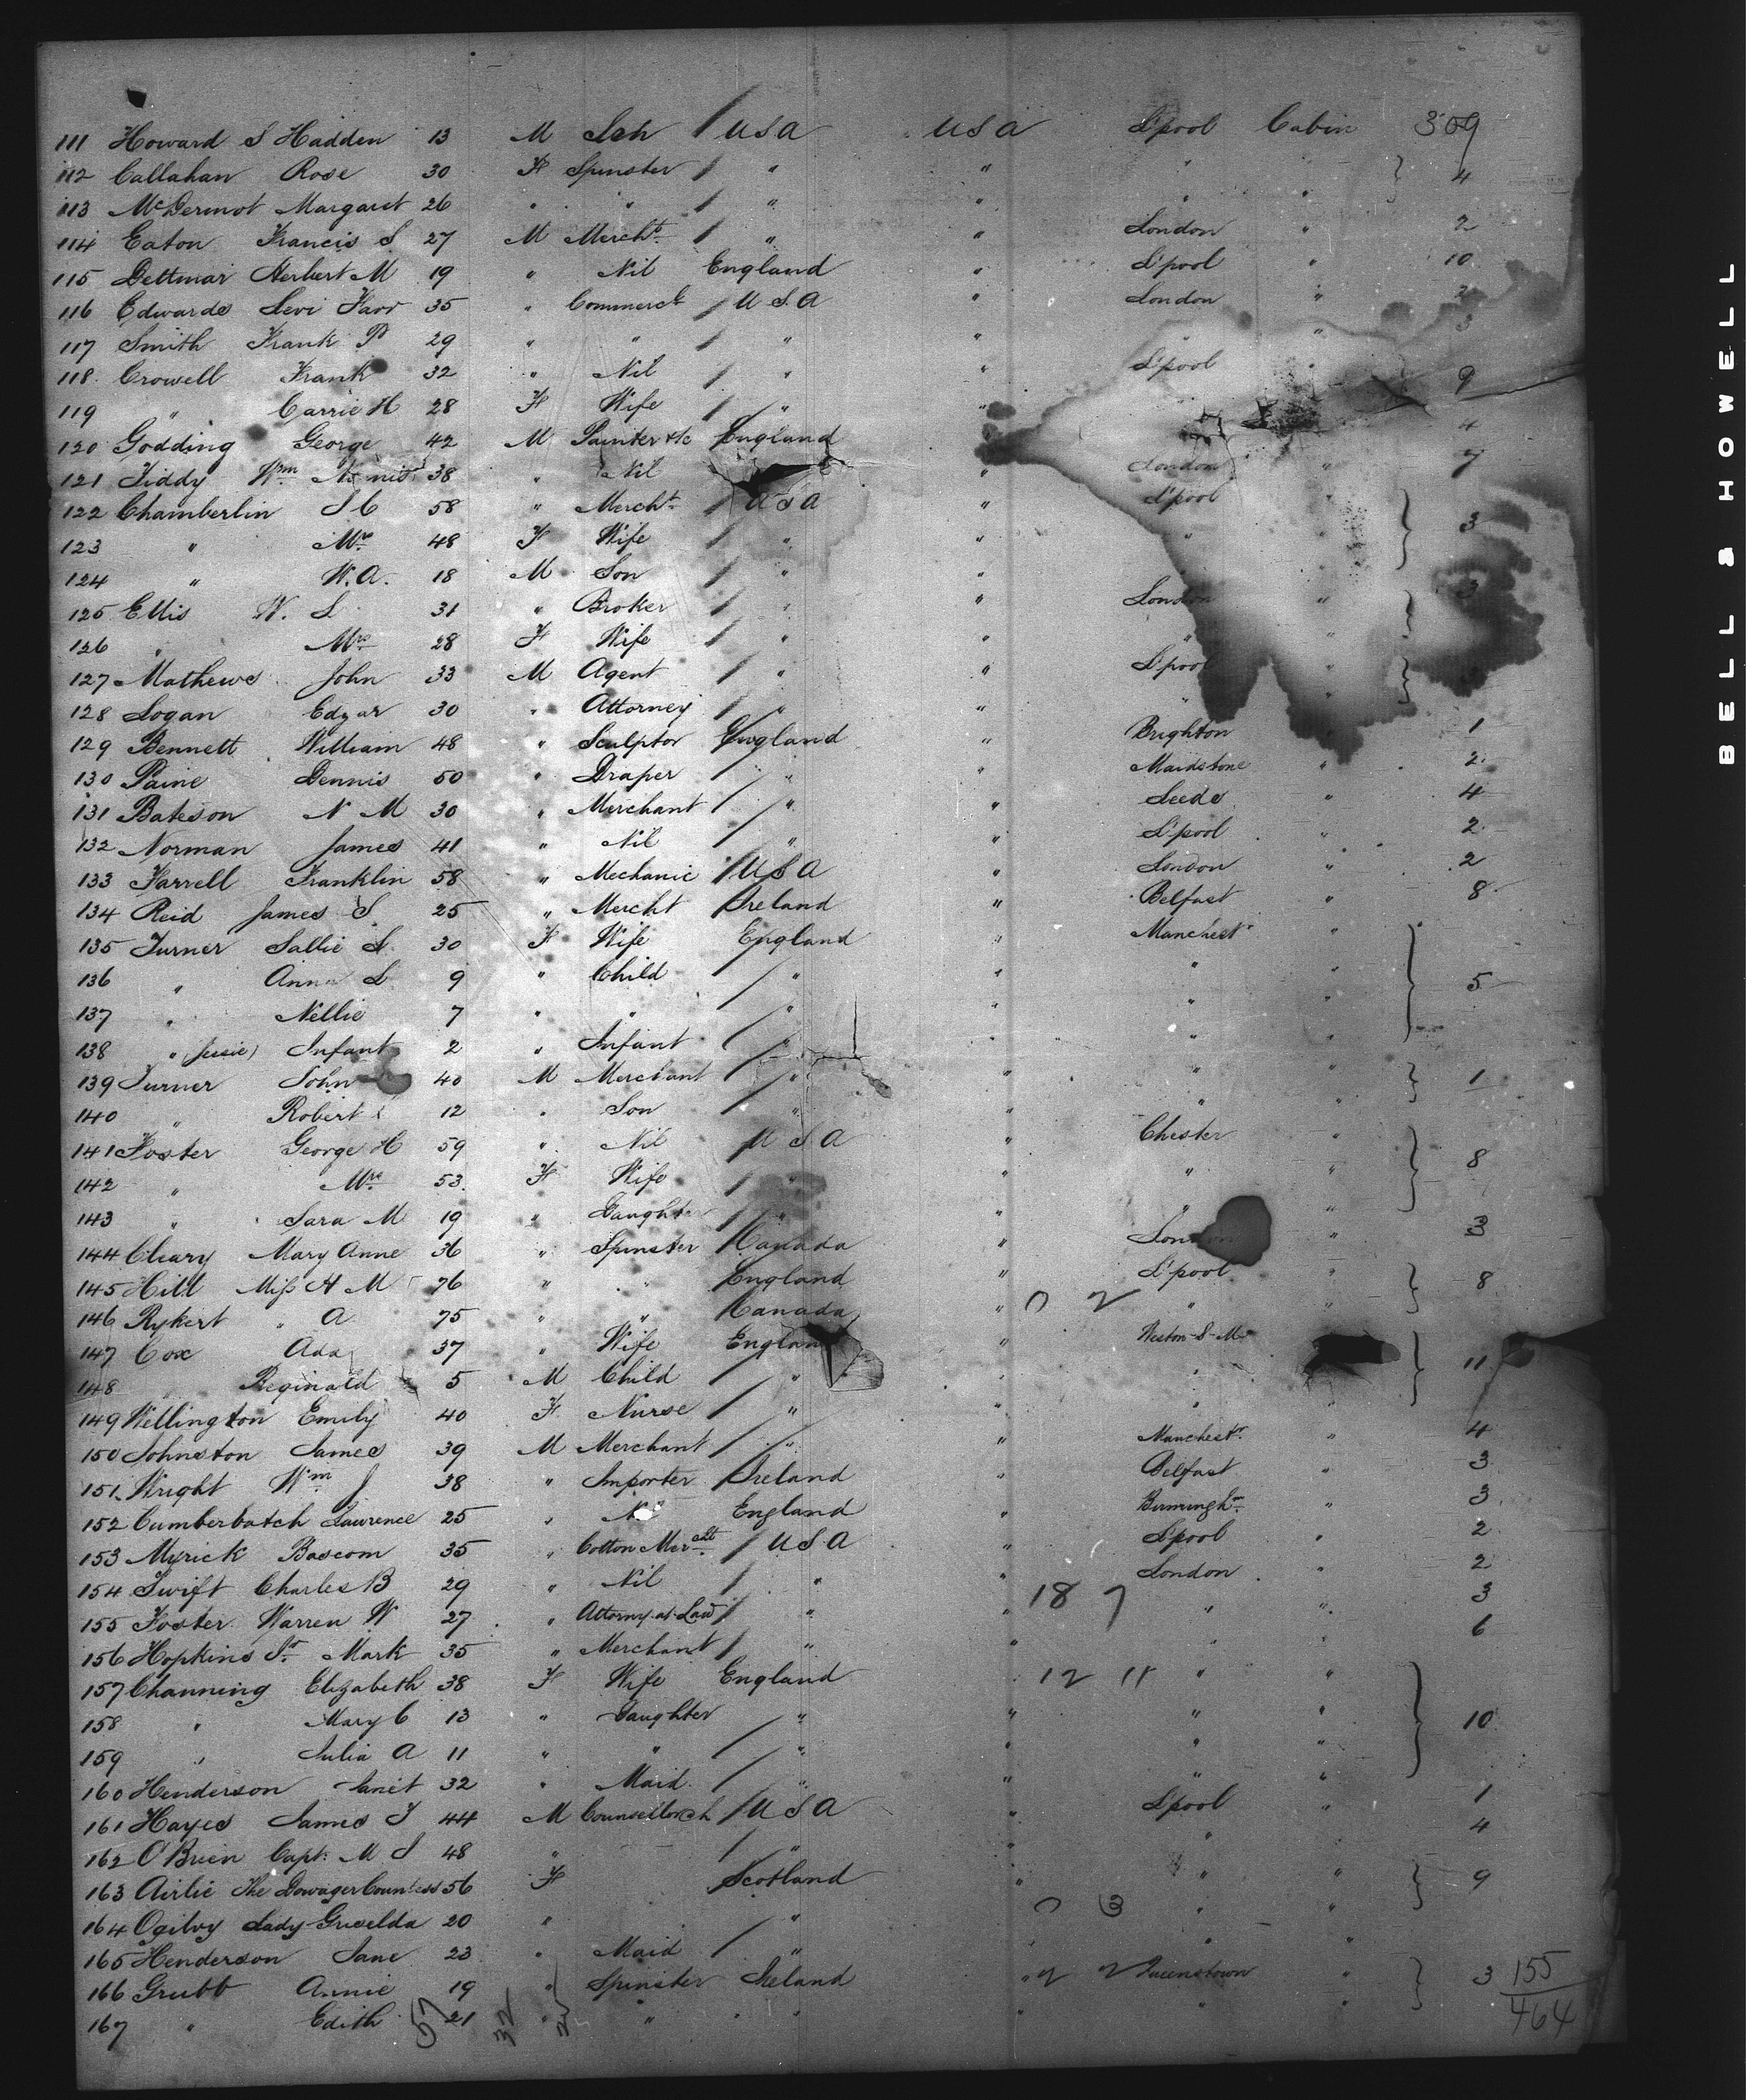 111 Howard S Hadden 13 M Sch / USA USA L'pool Cabin 309
112 Callahan Rose 30 F Spinster / " " " " 4
113 McDermot Margaret 26 " " / " " " "
114 Eaton Francis S 27 M Mercht / " " London " 2
115 Dettmar Herbert M 19 " Nil England " L'pool " 10
116 Edwards Levi Farr 35 " Commercl / U S A " London " 2
117 Smith Frank P 29 " " / " " " " 3
118 Crowell Frank 32 " Nil / " L'pool " 9
119 " Carrie H 28 F Wife / " "
120 Godding George 42 M Painter etc England " 4
121 Tiddy Wm 38 " Nil " London " 7
122 Chamberlin S C 58 " Mercht / U S A " L'pool
123 " Mrs 48 F Wife / " " " 3
124 " W. A. 18 M Son / " "
125 Ellis W. L 31 " Broker / " " London " 3
126 " Mrs 28 F Wife / " " " "
127 Mathews John 33 M Agent / " " L'pool "
128 Logan Edgar 30 " Attorney / " " " "
129 Bennett William 48 " Sculptor England " Brighton 1
130 Paine Dennis 50 " Draper / " Maidstone " 2
131 Bateson N M 30 " Merchant / " " Leeds " 4
132 Norman James 41 " Nil / " " L'pool " 2
133 Farrell Franklin 58 " Mechanic / U S A " London " 2
134 Reid James S 25 " Mercht Ireland " Belfast " 8
135 Turner Sallie L 30 F Wife England " Manchestr "
136 " Anna L 9 " Child / " " " " 5
137 " Nellie 7 " " / " " " "
138 " (Jessie) Infant 2 " Infant / " " " "
139 Turner John 40 M Merchant / " " " " 1
140 " Robert 12 " Son / " " " "
141 Foster George H 59 " Nil U S A " Chester "
142 " Mrs 53 F Wife / " " " " 8
143 " Sara M 19 " Daught / " " " "
144 Cleary Mary Anne 36 " Spinster Canada " London " 3
145 Hill Miss H M 76 " " England " L'pool " 8
146 Rykert " A 75 " " Canada " 0 2 " "
147 Cox Ada 37 " Wife England " Weston-S-M
148 " Reginald 5 M Child / " " " 11
149 Wellington Emily 40 F Nurse / " " " "
150 Johnston James 39 M Merchant / " " Manchestr " 4
151 Wright Wm J 38 " Importer Ireland " Belfast " 3
152 Cumberbatch Lawrence 25 " England " Birminghm " 3
153 Myrick Bascom 35 " Cotton Mercht / U S A " L'pool " 2
154 Swift Charles B 29 " Nil / " " London " 2
155 Foster Warren W 27 " Attorny-at-Law / " " 18 7 " " 3
156 Hopkins Sr Mark 35 " Merchant / " " " " 6
157 Channing Elizabeth 38 F Wife England " 12 11 " "
158 " Mary C 13 " Daughter / " " " " 10
159 " Julia A 11 " " / " " " "
160 Henderson Janet 32 " Maid / " " " "
161 Hayes James J 44 M / U S A " L'pool " 1
162 O'Brien Capt. M S 48 " / " " " 4
163 Airlie The Dowager Countess 56 F Scotland " " " 9
164 Ogilvy Lady Griselda 20 " / " 0 3 " "
165 Henderson Jane 23 " Maid / " " " "
166 Grubb Annie 19 " Spinster Ireland " 2 2 Queenstown " 3 155
167 " Edith 21 " " " " " " 464
57 32
BELL & HOWELL